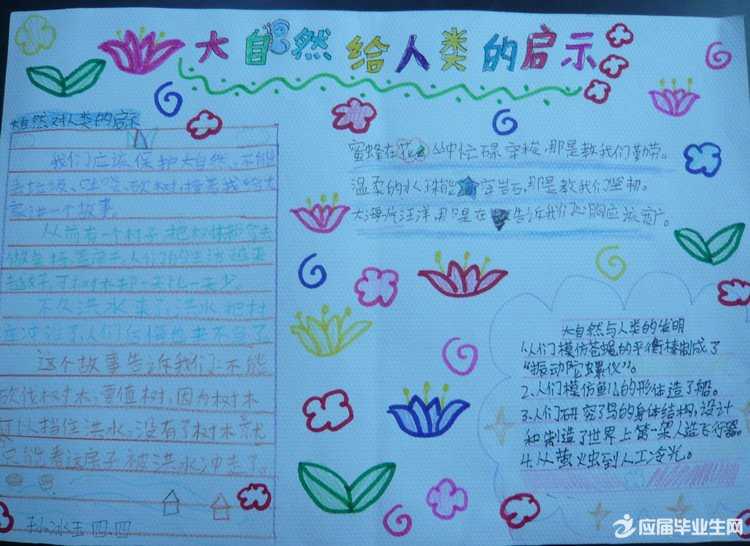 大自然给人类的启示
大自然对人类的启示
我们应该保护大自然，不能
家讲一个故事。
从前有一个村子，把树林都拿去
不久洪水来了，洪水把村
庄冲没了，人们后悔也来不及了
这个故事告诉我们：不能
砍伐树木，要植树，因为树木
可以挡住洪水，没有了树木就
只能看这房子被洪水冲走了。
孙冰玉 四.四
蜜蜂在花丛中忙碌穿梭，那是教我们勤劳。
温柔的水珠能穿岩石，那是教我们坚韧。
大海广汪洋，那是在告诉我们心胸应该宽广。
大自然与人类的发明
1.人们模仿苍蝇的平衡棒制成了
“振动陀螺仪”。
2.人们模仿鱼儿的形体造了船。
3.人们研究鸟的身体结构，设计
和制造了世界上第一架人造飞行器。
4.从萤火虫到人工冷光。
应届毕业生网